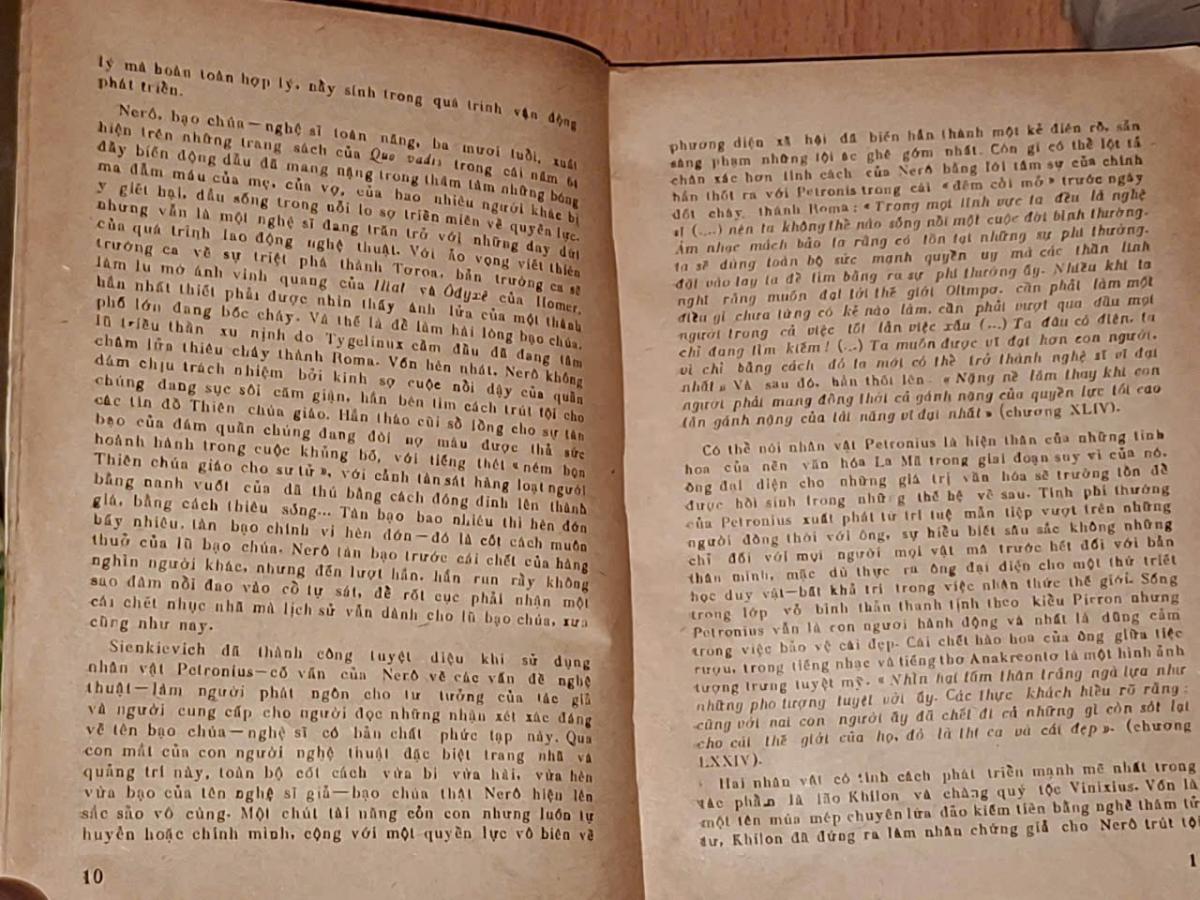 lý mà hoàn toàn hợp lý, nảy sinh trong quá trình vận động
phát triển.
Nerô, bạo chúa — nghệ sĩ toàn năng, ba mươi tuổi, xuất
hiện trên những trang sách của Quo vadis trong cái năm 64
đầy biến động dẫu đã mang nặng trong thâm tâm những bóng
ma đẫm máu của mẹ, của vợ, của bao nhiêu người khác bị
y giết hại, dẫu sống trong nỗi lo sợ triền miên về quyền lực,
nhưng vẫn là một nghệ sĩ đang trăn trở với những day dứt
của quá trình lao động nghệ thuật. Với ảo vọng viết thiên
trường ca về sự triệt phá thành Tơroa, bản trường ca sẽ
làm lu mờ ánh vinh quang của Iliat và Ôđyxê của Homer,
hắn nhất thiết phải được nhìn thấy ánh lửa của một thành
phố lớn đang bốc cháy. Và thế là để làm hài lòng bạo chúa,
lũ triều thần xu nịnh do Tygelinux cầm đầu đã đang tâm
châm lửa thiêu cháy thành Roma. Vốn hèn nhát, Nerô không
dám chịu trách nhiệm bởi kinh sợ cuộc nổi dậy của quần
chúng đang sục sôi căm giận, hắn bèn tìm cách trút tội cho
các tín đồ Thiên chúa giáo. Hắn tháo cũi sổ lồng cho sự tàn
bạo của đám quần chúng đang đòi nợ máu được thả sức
hoành hành trong cuộc khủng bố, với tiếng thét « ném bọn
Thiên chúa giáo cho sư tử », với cảnh tàn sát hàng loạt người
bằng nanh vuốt của dã thú bằng cách đóng đinh lên thành
giá, bằng cách thiêu sống... Tàn bạo bao nhiêu thì hèn đớn
bấy nhiêu, tàn bạo chính vì hèn đớn — đó là cốt cách muôn
thuở của lũ bạo chúa. Nerô tàn bạo trước cái chết của hàng
nghìn người khác, nhưng đến lượt hắn, hắn run rẩy không
sao đâm nổi dao vào cổ tự sát, để rốt cục phải nhận một
cái chết nhục nhã mà lịch sử vẫn dành cho lũ bạo chúa, xưa
cũng như nay.
Sienkievich đã thành công tuyệt diệu khi sử dụng
nhân vật Petronius—cố vấn của Nerô về các vấn đề nghệ
thuật—làm người phát ngôn cho tư tưởng của tác giả
và người cung cấp cho người đọc những nhận xét xác đáng
về tên bạo chúa—nghệ sĩ có bản chất phức tạp này. Qua
con mắt của con người nghệ thuật đặc biệt trang nhã và
quảng trí này, toàn bộ cốt cách vừa bi vừa hài, vừa hèn
vừa bạo của tên nghệ sĩ giả—bạo chúa thật Nerô hiện lên
sắc sảo vô cùng. Một chút tài năng cỏn con nhưng luôn tự
huyễn hoặc chính mình, cộng với một quyền lực vô biên về
10
phương diện xã hội đã biến hắn thành một kẻ điên rồ, sẵn
sàng phạm những tội ác ghê gớm nhất. Còn gì có thể lột tả
chân xác hơn tính cách của Nerô bằng lời tâm sự của chính
hắn thốt ra với Petronis trong cái « đêm cởi mở » trước ngày
đốt cháy thành Roma : « Trong mọi lĩnh vực ta đều là nghệ
sĩ (....) nên ta không thể nào sống nổi một cuộc đời bình thường.
Âm nhạc mách bảo ta rằng có tồn tại những sự phi thường.
ta sẽ dùng toàn bộ sức mạnh quyền uy mà các thần linh
đặt vào tay ta để tìm bằng ra sự phi thường ấy. Nhiều khi ta
nghĩ rằng muốn đạt tới thế giới Olimpơ, cần phải làm một
điều gì chưa từng có kẻ nào làm, cần phải vượt qua đầu mọi
người trong cả việc tốt lẫn việc xấu (...) Ta đâu có điên, ta
chỉ đang tìm kiếm ! (...) Ta muốn được vĩ đại hơn con người,
vì chỉ bằng cách đó ta mới có thể trở thành nghệ sĩ vĩ đại
nhất » Và sau đó, hắn thốt lên « Nặng nề lắm thay khi con
người phải mang đồng thời cả gánh nặng của quyền lực tối cao
lẫn gánh nặng của tài năng vĩ đại nhất » (chương XLIV).
Có thể nói nhân vật Petronius là hiện thân của những tinh
hoa của nền văn hóa La Mã trong giai đoạn suy vi của nó,
ông đại diện cho những giá trị văn hóa sẽ trường tồn để
được hồi sinh trong những thế hệ về sau. Tính phi thường
của Petronius xuất phát từ trí tuệ mẫn tiệp vượt trên những
người đồng thời với ông, sự hiểu biết sâu sắc không những
chỉ đối với mọi người mọi vật mà trước hết đối với bản
thân mình, mặc dù thực ra ông đại diện cho một thứ triết
học duy vật—bất khả tri trong việc nhận thức thế giới. Sống
trong lớp vỏ bình thản thanh tịnh theo kiểu Pirron nhưng
Petronius vẫn là con người hành động và nhất là dũng cảm
trong việc bảo vệ cái đẹp. Cái chết hào hoa của ông giữa tiệc
rượu, trong tiếng nhạc và tiếng thơ Anakreontơ là một hình ảnh
tượng trưng tuyệt mỹ. « Nhìn hai tấm thân trắng ngà tựa như
những pho tượng tuyệt vời ấy. Các thực khách hiểu rõ rằng :
cùng với hai con người ấy đã chết đi cả những gì còn sót lại
cho cái thế giới của họ, đó là thi ca và cái đẹp ». (chương
LXXIV).
Hai nhân vật có tính cách phát triển mạnh mẽ nhất trong
tác phẩm là lão Khilon và chàng quý tộc Vinixius. Vốn là
một tên múa mép chuyên lừa đảo kiếm tiền bằng nghề thám tử
tư, Khilon đã đứng ra làm nhân chứng giả cho Nerô trút tội
1